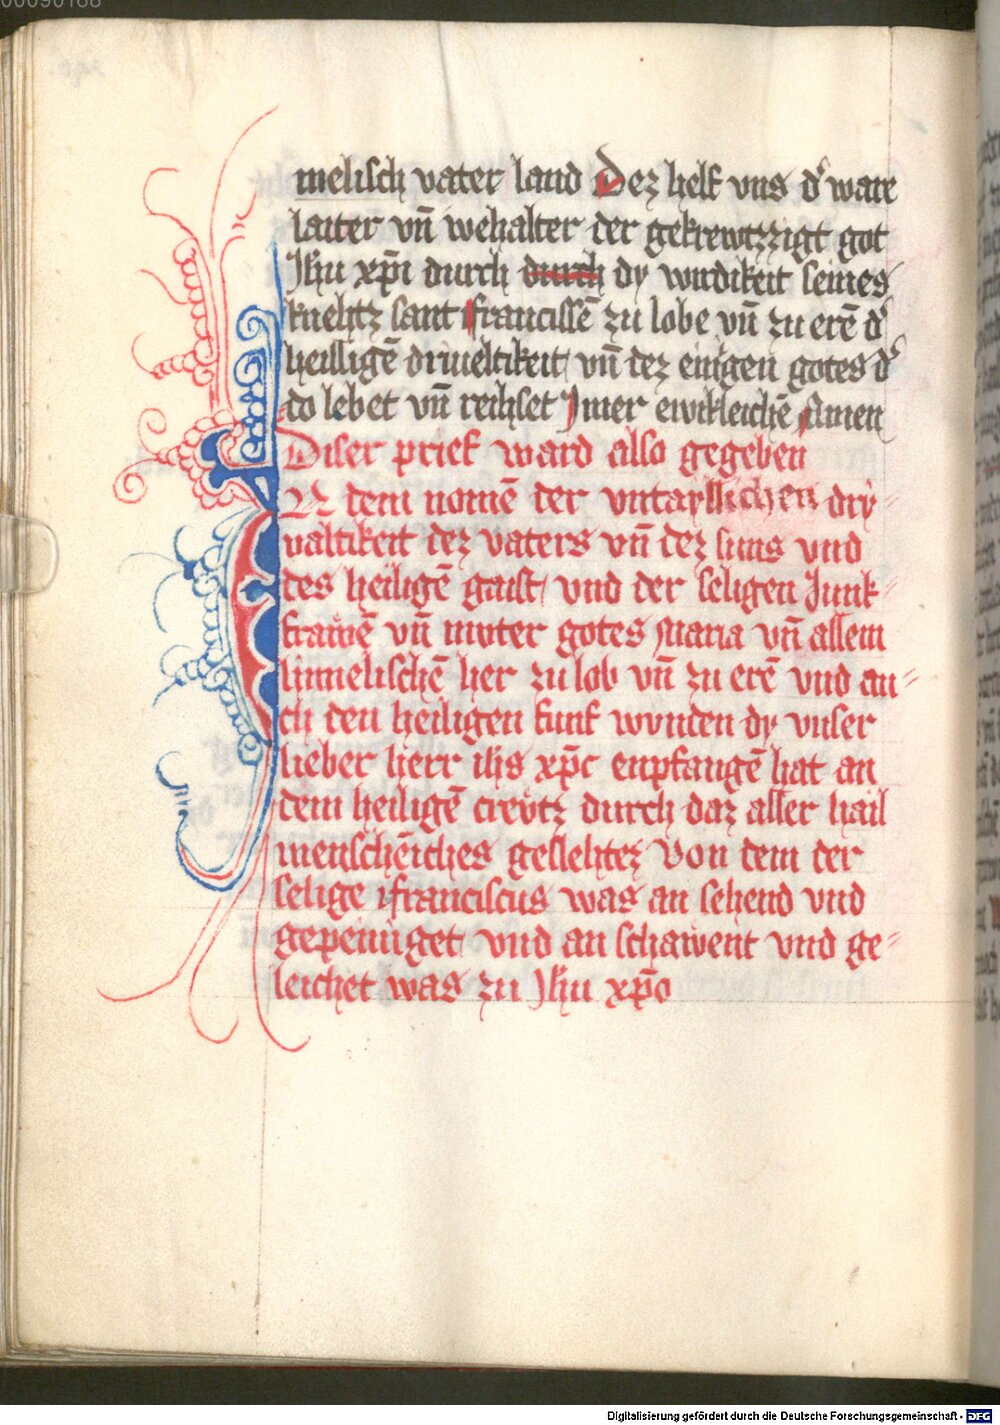 00090168
melisch vater land Dez helf vns d' ware
laiter vn̄ wehalter der gekrewtzzigt got
Jhu xp̄i durch durch dy wirdikeit seines
knehtz sant ffrancissē zu lobe vn̄ zu erē d'
heilligē driueltikeit vn̄ dez einigen gotes d'
do lebet vn̄ reihset Jmer ewikleichē Amen
Diser prief ward also gegeben
N dem nomē der vntayllichen dry
valtikeit dez vaters vn̄ dez suns vnd
des heiligē gaist vnd der seligen Junk
frawē vn̄ muter gotes Maria vn̄ allem
himelischē her zu lob vn̄ zu erē vnd au
ch den heiligen funf wunden dy vnser
lieber herr ihs xp̄c enpfangē hat an
dem heiligē creütz durch daz aller hail
menschēiches geslehtez von dem der
selige ffranciscus was an sehend vnd
gepeiniget vnd an schawent vnd ge
leichet was zu Jhu xp̄o
Digitalisierung gefördert durch die Deutsche Forschungsgemeinschaft - DFG